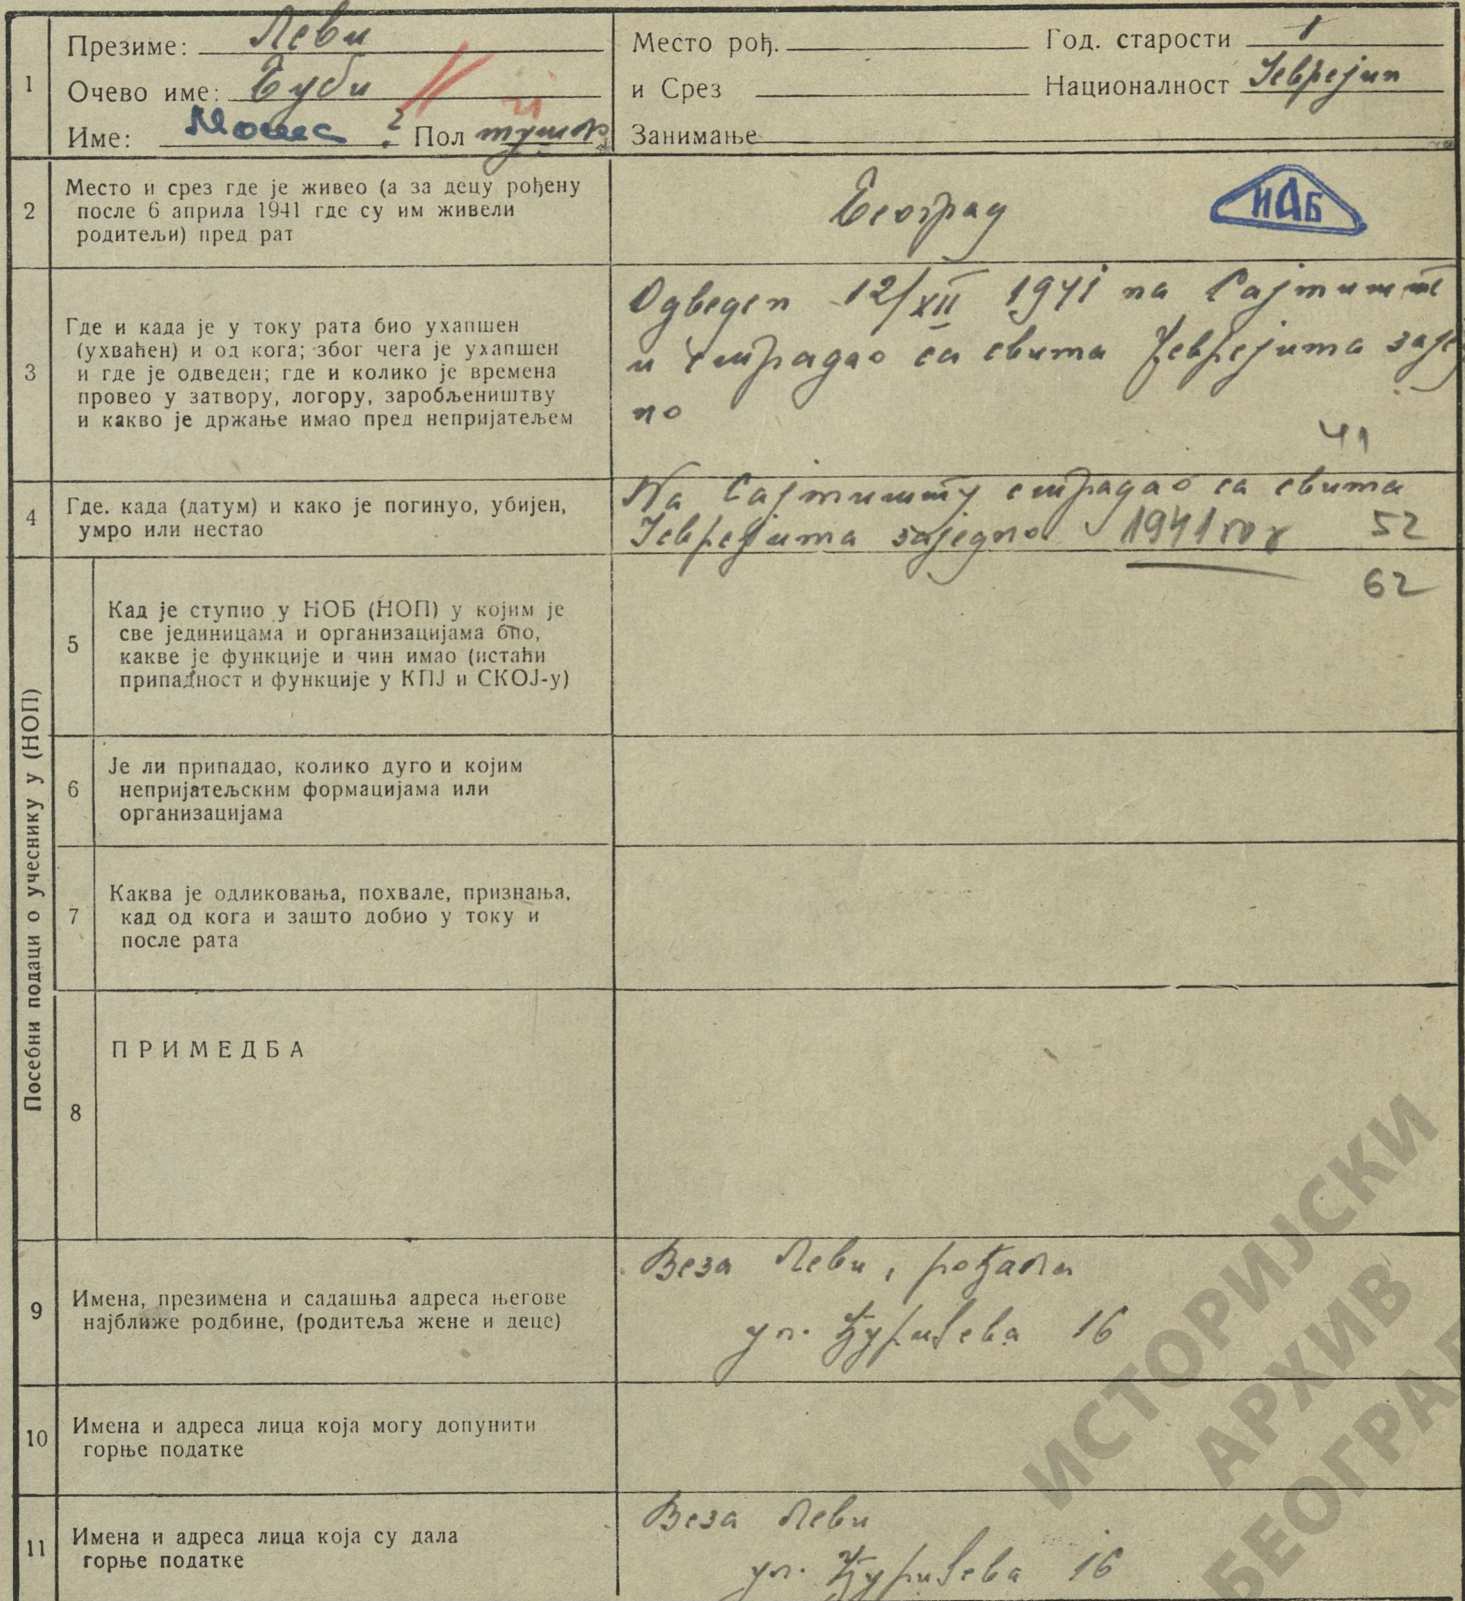 1
Презиме: Леви
Очево име: Буби
Име: Моше ? Пол мушк
Место рођ.
и Срез
Год. старости 1
Националност Јеврејин
Занимање
2
Место и срез где је живео (а за децу рођену
после 6 априла 1941 где су им живели
родитељи) пред рат
Београд
ИАБ
3
Где и када је у току рата био ухапшен
(ухваћен) и од кога; због чега је ухапшен
и где је одведен; где и колико је времена
провео у затвору, логору, заробљеништву
и какво је држање имао пред непријатељем
Одведен 12/XII 1941 на Сајмишт
и страдао са свима Јеврејима заје
но
41
4
Где. када (датум) и како је погинуо, убијен,
умро или нестао
На Сајмишту страдао са свима
Јеврејима заједно 1941 год 52
62
Посебни подаци о учеснику у (НОП)
5
Кад је ступио у НОБ (НОП) у којим је
све јединицама и организацијама био,
какве је функције и чин имао (истаћи
припадност и функције у КПЈ и СКОЈ-у)
6
Је ли припадао, колико дуго и којим
непријатељским формацијама или
организацијама
7
Каква је одликовања, похвале, признања,
кад од кога и зашто добио у току и
после рата
8
ПРИМЕДБА
9
Имена, презимена и садашња адреса његове
најближе родбине, (родитеља жене и деце)
Веза Леви, рођака
ул. Ђуришева 16
10
Имена и адреса лица која могу допунити
горње податке
11
Имена и адреса лица која су дала
горње податке
Веза Леви
ул. Ђуришева 16
ИСТОРИЈСКИ
АРХИВ
БЕОГРАД